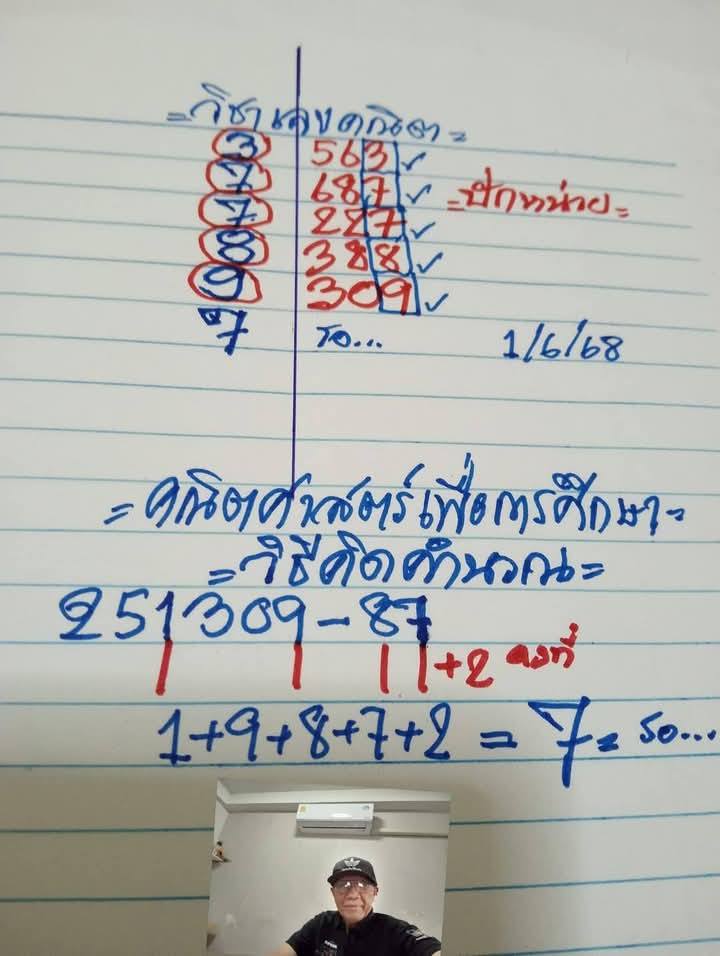 =วิชาเลขคณิต=
3 563 ✓
7 687 ✓ =ปักหน่วย=
7 227 ✓
8 388 ✓
9 309 ✓
7 รอ... 1/6/68
=คณิตศาสตร์เพื่อการศึกษา=
=วิธีคิดคำนวณ=
251309-87
+2 คงที่
1+9+8+7+2=7=รอ...